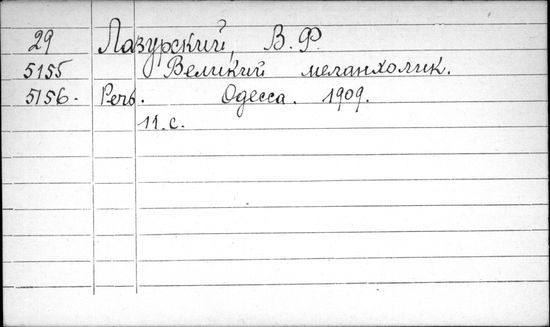 29 Лазурский, В.Ф.
5155 Великий меланхолик.
5156. Речь. Одесса. 1909.
11.с.